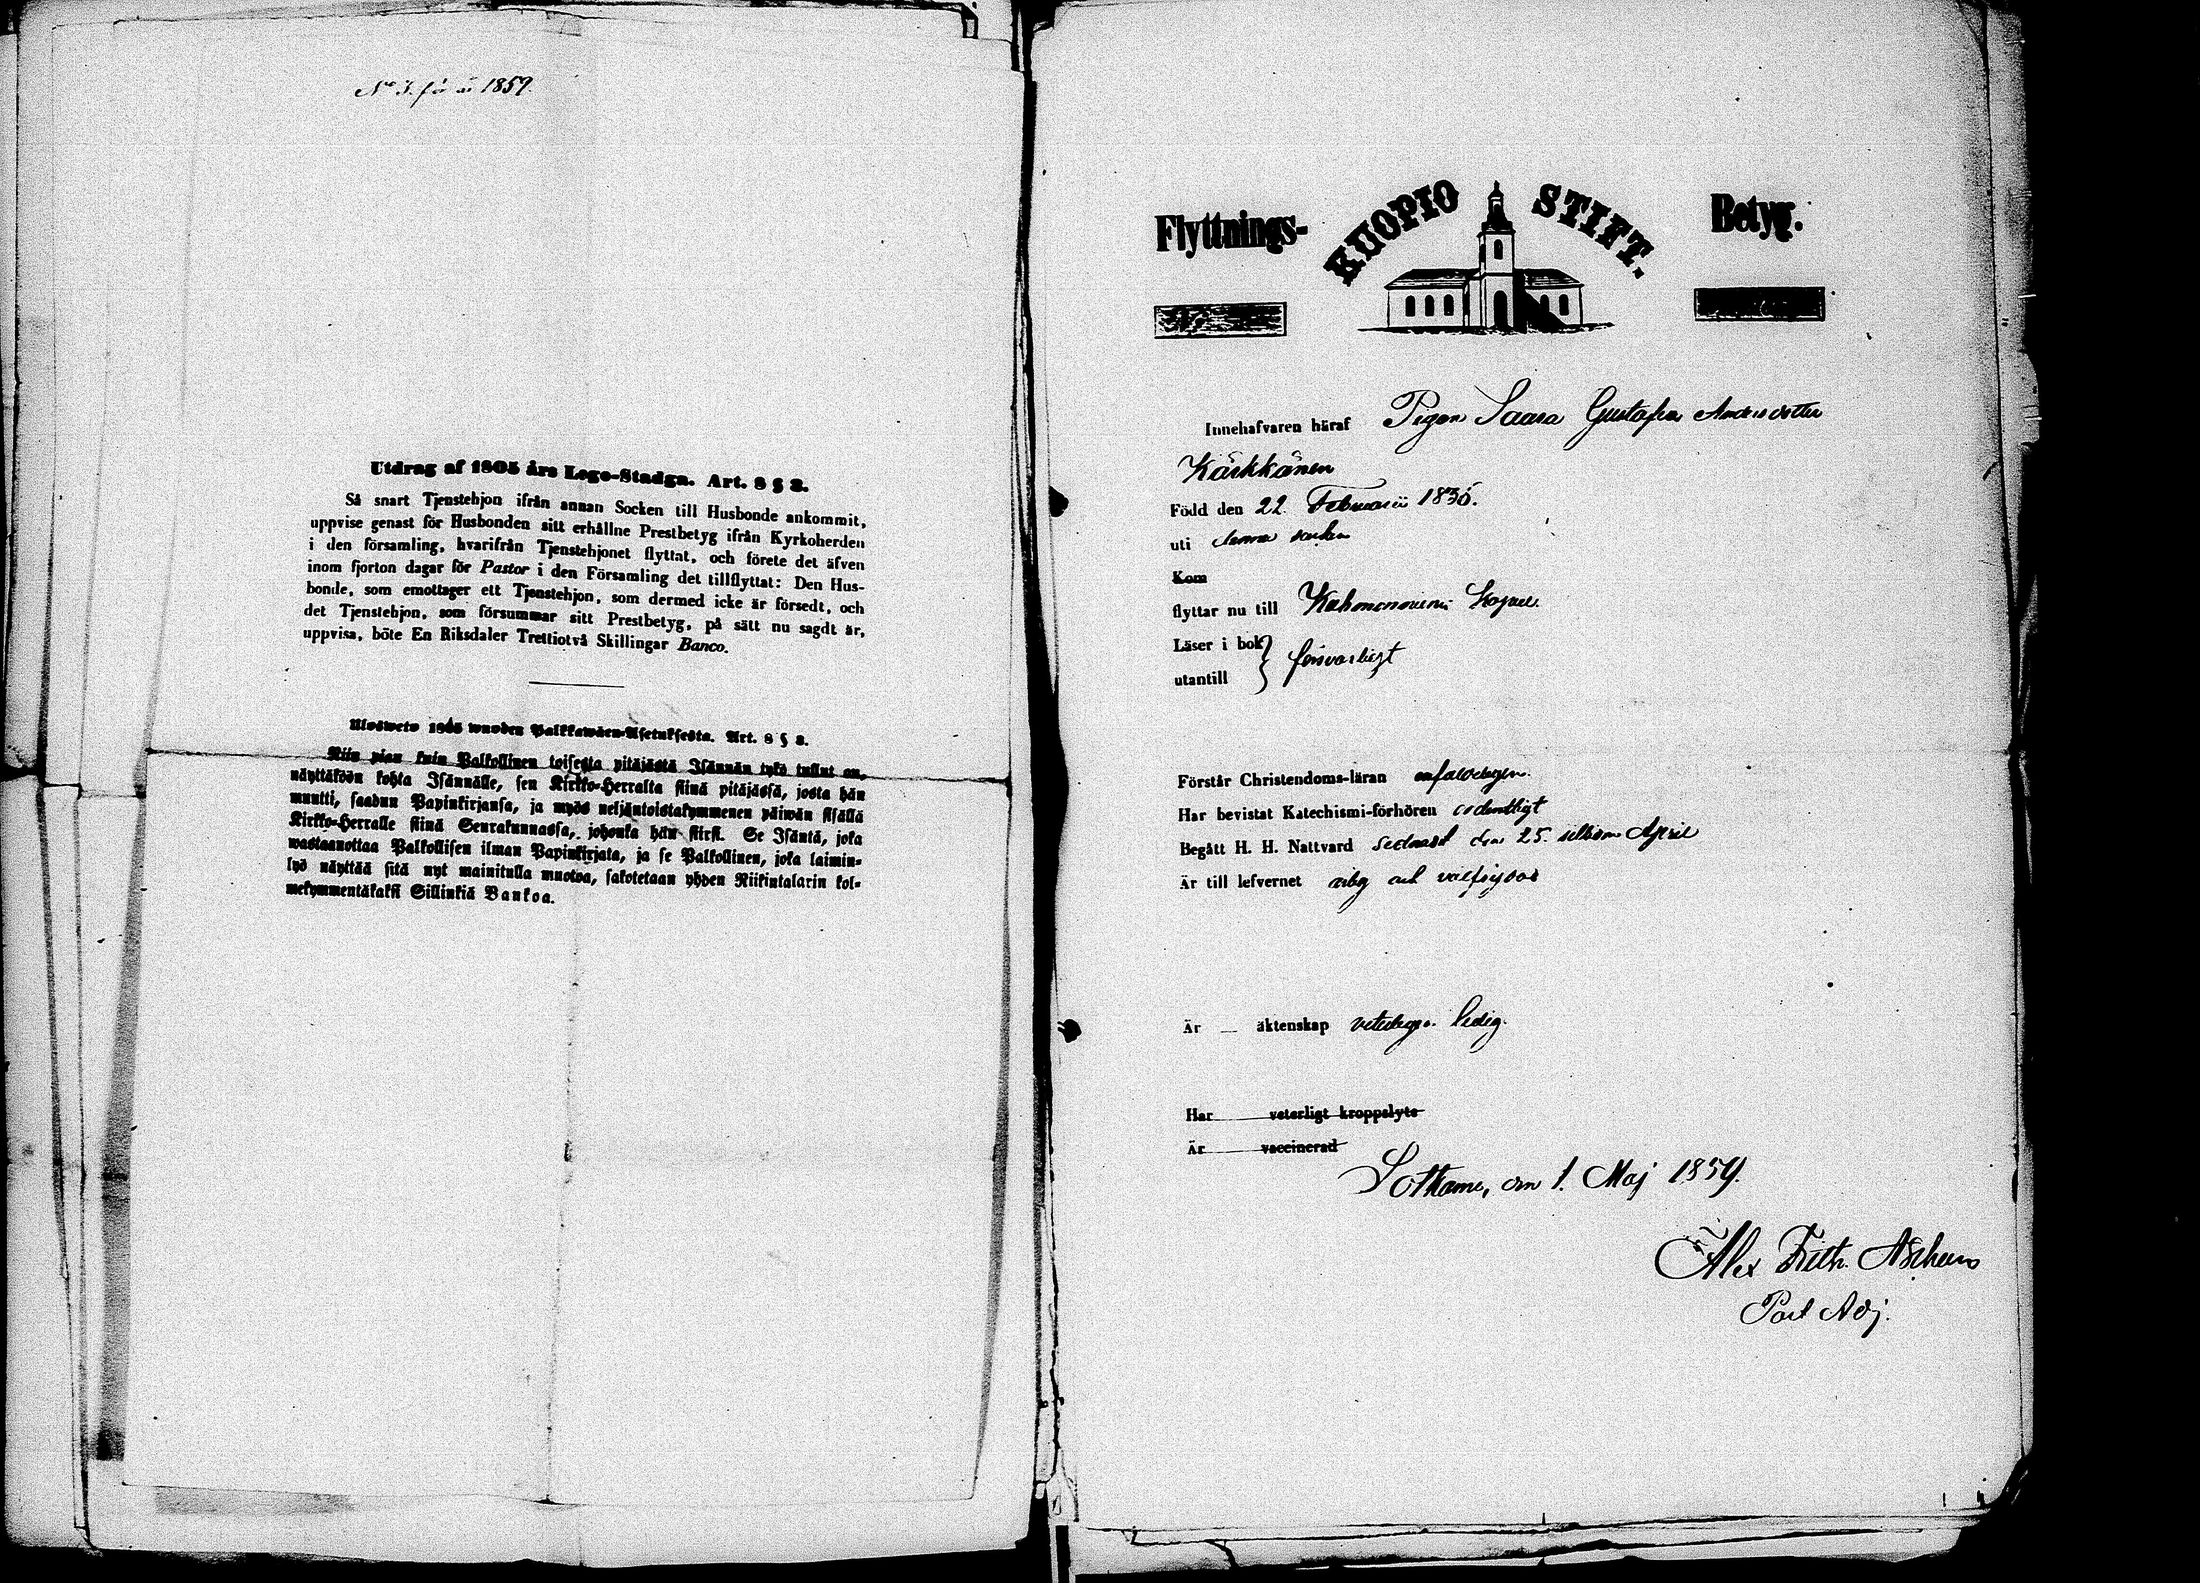 No 3. för år 1859.
Utdrag af 1805 års Lego-Stadga. Art. 8 § 3.
Så snart Tjenstehjon ifrån annan Socken till Husbonde ankommit,
uppvise genast för Husbonden sitt erhållne Prestbetyg ifrån Kyrkoherden
i den församling, hvarifrån Tjenstehjonet flyttat, och förete det äfven
inom fjorton dagar för Pastor i den Församling det tillflyttat: Den Hus-
bonde, som emottager ett Tjenstehjon, som dermed icke är försedt, och
det Tjenstehjon, som försummar sitt Prestbetyg, på sätt nu sagdt är,
uppvisa, böte En Riksdaler Trettiotvå Skillingar Banco.
Ulosweto 1805 wuoden Palkkawäen-Asetuksesta. Art. 8 § 3.
Niin pian kuin Palkollinen toisesta pitäjästä Isännän tykö tullut on,
näyttäköön kohta Isännälle, sen Kirkko-Herralta siinä pitäjässä, josta hän
muutti, saadun Papinkirjansa, ja myös neljäntoistakymmenen päiwän sisällä
Kirkko-Herralle siinä Seurakunnassa, johonka hän siirsi. Se Isäntä, joka
wastaanottaa Palkollisen ilman Papinkirjata, ja se Palkollinen, joka laimin-
lyö näyttää sitä nyt mainitulla muotoa, sakotetaan yhden Riikintalarin kol-
mekymmentäkaksi Sillinkiä Bankoa.
Flyttnings- KUOPIO STIFT. Betyg.
Innehafvaren häraf Pigan Saara Gustafva Andersdotter
Kärkkänen
Född den 22 Februarii 1835.
uti denna socken
Kom
flyttar nu till Kapell.
Läser i bok } försvarligt
utantill
Förstår Christendoms-läran enfaldigen.
Har bevistat Katechismi-förhören ordentligt
Begått H. H. Nattvard sednast den 25. sistl. April
Är till lefvernet ärlig och välfrejdad
Är — äktenskap veterligen ledig.
Har veterligt kroppslyte
Är vaccinerad
Sotkamo, den 1. Maj 1859.
Alex Fredr.
Past Adj.